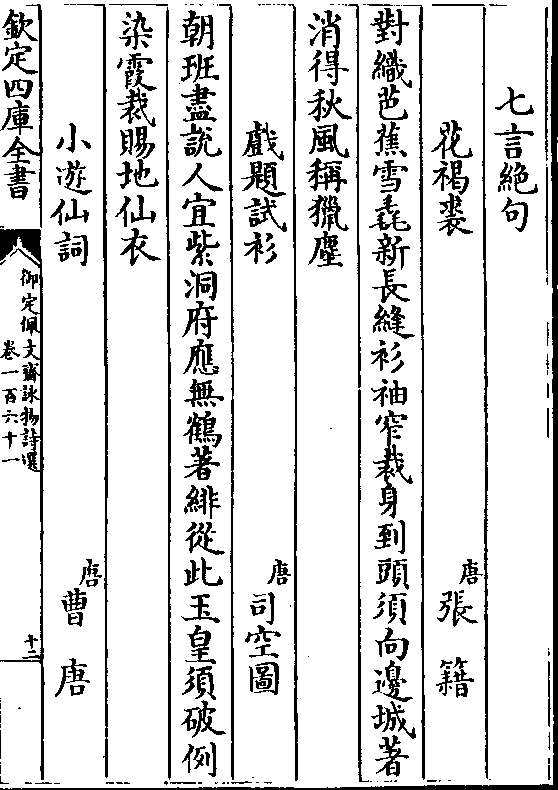 七言絶句
花褐裘 唐張籍
對織芭蕉雪毳新長縫衫袖窄裁身到頭須向邊城著
消得秋風稱獵塵
戲題試衫 唐司空圖
朝班盡說人宜紫洞府應無鶴著緋從此玉皇須破例
染霞裁賜地仙衣
小遊仙詞 唐曹唐
欽定四庫全書
御定佩文齋詠物詩選
卷一百六十一
十二